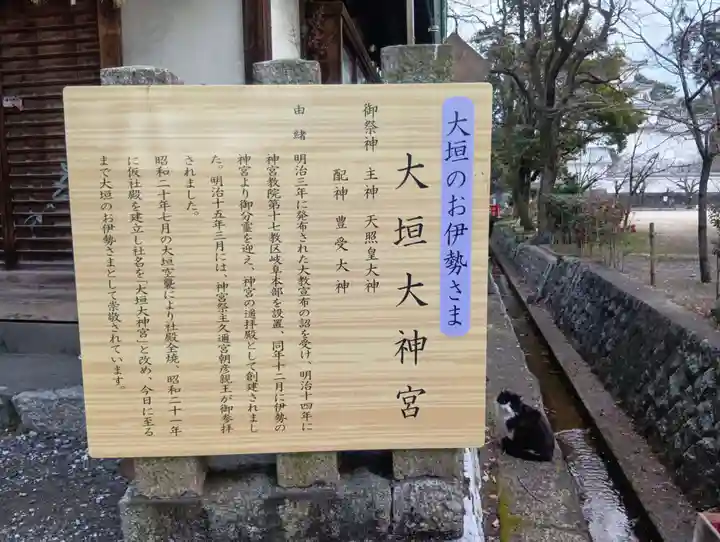 大垣のお伊勢さま
大垣大神宮
御祭神　主神　天照皇大神
配神　豊受大神
由緒　明治三年に発布された大教宣布の詔を受け、明治十四年に
神宮教院第十七教区岐阜本部を設置、同年十二月に伊勢の
神宮より御分霊を迎え、神宮の遥拝殿として創建されまし
た。明治十五年三月には、神宮祭主久邇宮朝彦親王が御参拝
されました。
昭和二十年七月の大垣空襲により社殿全焼、昭和二十一年
に仮社殿を建立し社名を「大垣大神宮」と改め、今日に至る
まで大垣のお伊勢さまとして崇敬されています。